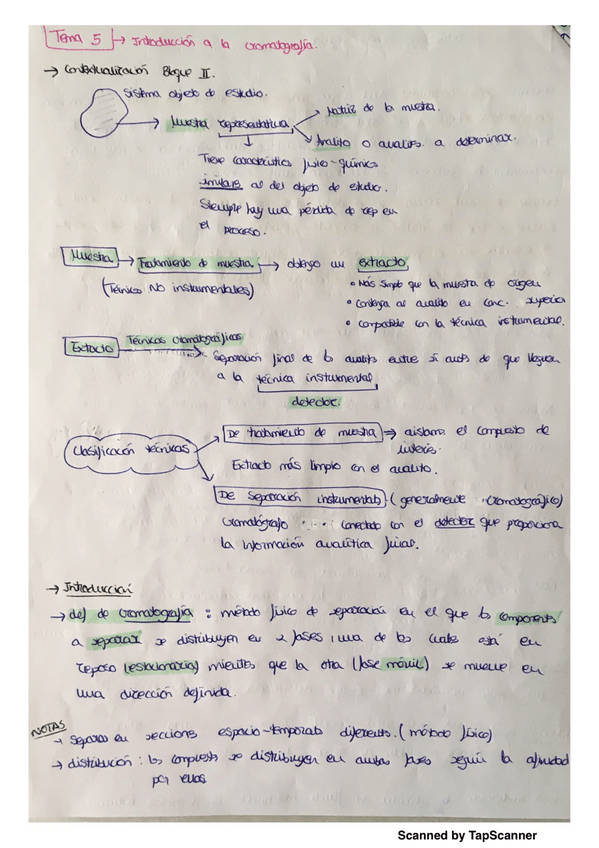 Tema 5 → Introducción a la cromatografía.
→ Contextualización Bloque II.
Sistema objeto de estudio.
→ Muestra representativa
Matriz de la muestra.
Analito o analitos a determinar.
Tiene características físico-químicas
similares al del objeto de estudio.
Siempre hay una pérdida de rep en
el proceso.
Muestra → Tratamiento de muestra → obtengo un extracto
(Técnicas NO instrumentales)
• Más simple que la muestra de origen
• Contenga al analito en conc. superior
• Compatible con la técnica instrumental.
Extracto Técnicas cromatográficas
Separación final de los analitos entre sí antes de que lleguen
a la técnica instrumental
detector.
Clasificación técnicas
De tratamiento de muestra ⇒ aislamos el compuesto de
interés.
Extracto más limpio con el analito.
De separación instrumentals (generalmente cromatográfico)
Cromatógrafo ···· conectado con el detector que proporciona
la información analítica final.
→ Introducción
→ def de cromatografía : método físico de separación en el que los components
a separar se distribuyen en 2 fases, una de las cuales está en
reposo (estacionaria) mientras que la otra (fase móvil) se mueve en
una dirección definida.
NOTAS
→ Separas en secciones espacio-temporals diferents. (método físico)
→ distribución : los compuests se distribuyen en ambas fases según la afinidad
por ellas.
Scanned by TapScanner